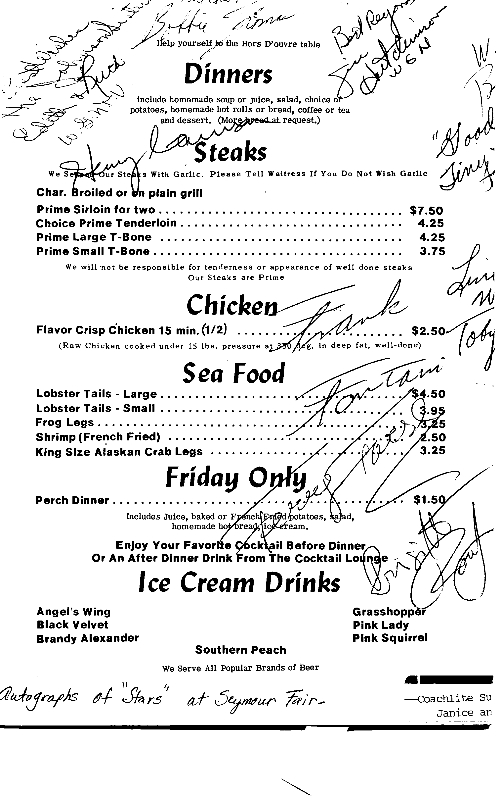 Help yourself to the Hors D'ouvre table
Dinners
include homemade soup or juice, salad, choice of
potatoes, homemade hot rolls or bread, coffee or tea
and dessert. (More bread at request.)
Steaks
We Serve Our Steaks With Garlic. Please Tell Waitress If You Do Not Wish Garlic
Char. Broiled or on plain grill
Prime Sirloin for two $7.50
Choice Prime Tenderloin 4.25
Prime Large T-Bone 4.25
Prime Small T-Bone 3.75
We will not be responsible for tenderness or appearance of well done steaks
Our Steaks are Prime
Chicken
Flavor Crisp Chicken 15 min. (1/2) $2.50
(Raw Chicken cooked under 15 lbs. pressure at deg. in deep fat, well-done)
Frank
Fontaine
Toby
"Good
Sea Food
Lobster Tails - Large $4.50
Lobster Tails - Small 3.95
Frog Legs 3.25
Shrimp (French Fried) 2.50
King Size Alaskan Crab Legs 3.25
Friday Only
Perch Dinner $1.50
Includes Juice, baked or French Fried potatoes, salad,
homemade hot bread, ice cream.
Enjoy Your Favorite Cocktail Before Dinner
Or An After Dinner Drink From The Cocktail Lounge
Ice Cream Drinks
Angel's Wing Grasshopper
Black Velvet Pink Lady
Brandy Alexander Pink Squirrel
Southern Peach
We Serve All Popular Brands of Beer
Autographs of "Stars" at Seymour Fair-
—Coachlite Su
Janice an